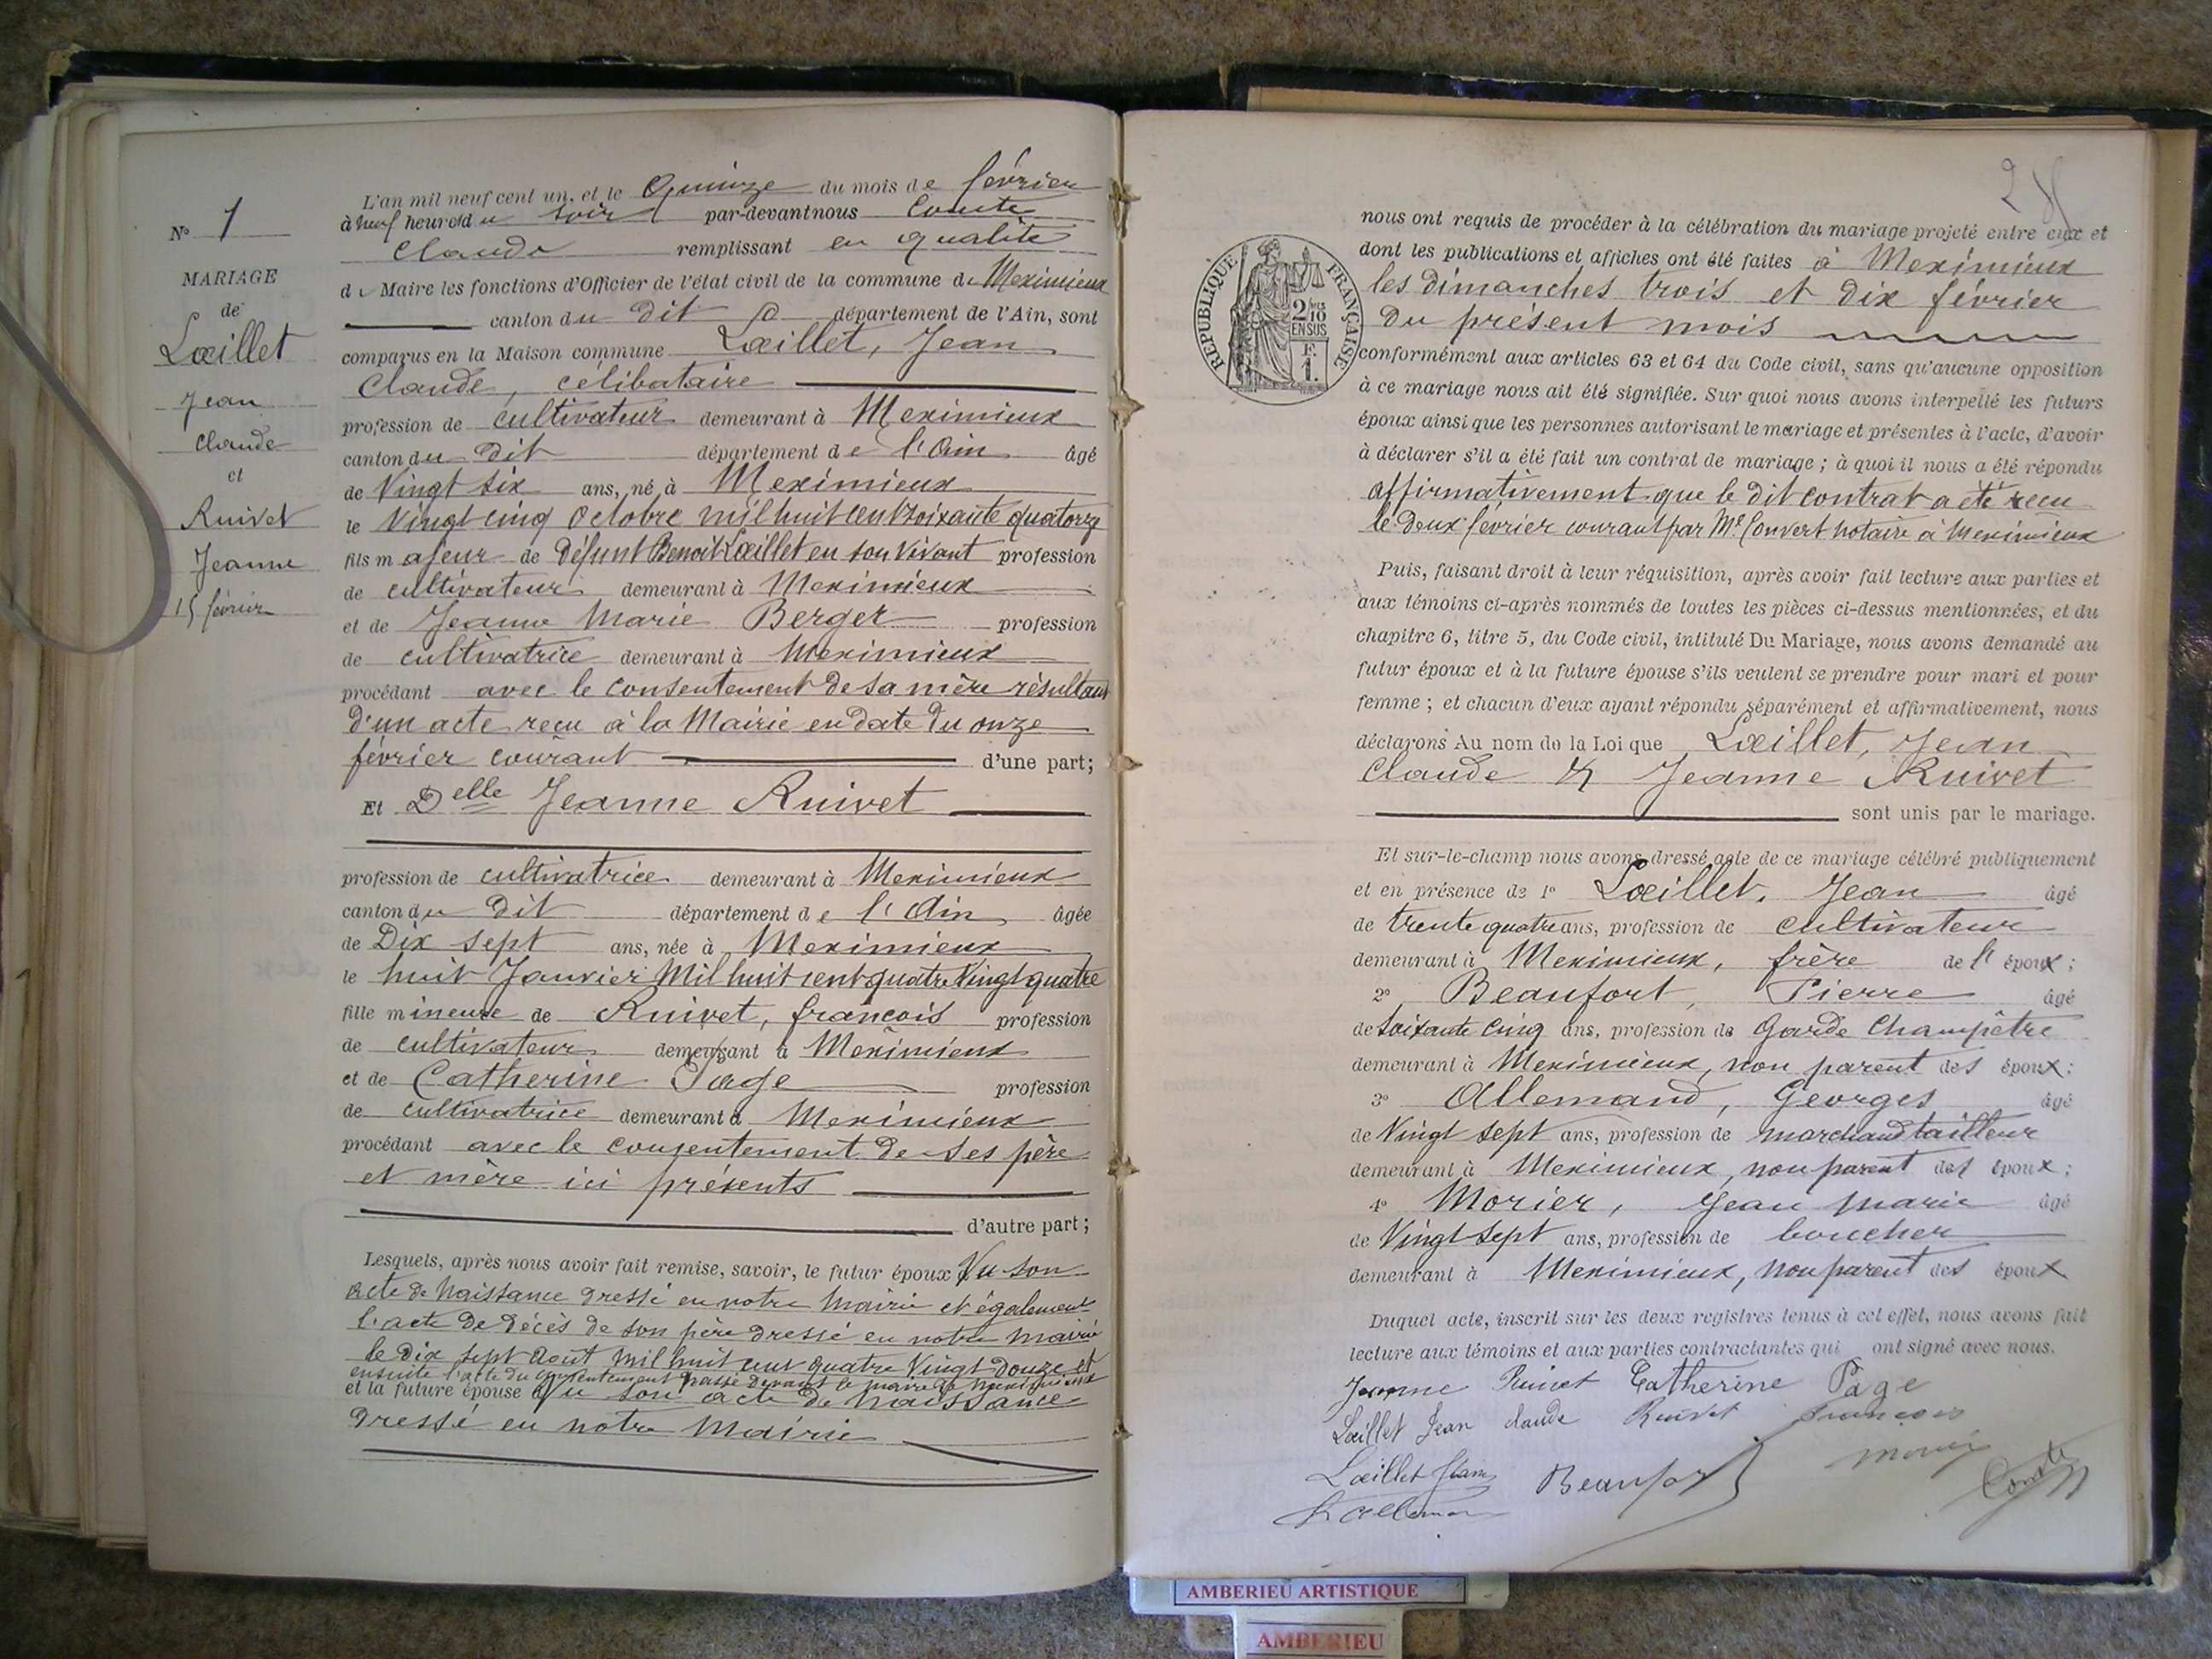 N° 1
MARIAGE
de
Lœillet
Jean
Claude
et
Ruivet
Jeanne
15 février
L'an mil neuf cent un, et le Quinze du mois de février
à neuf heures du soir par-devant nous Comte
Claude remplissant en qualité
de Maire les fonctions d'Officier de l'état civil de la commune de Meximieux
canton du dit département de l'Ain, sont
comparus en la Maison commune Lœillet, Jean
Claude, célibataire
profession de cultivateur demeurant à Meximieux
canton du dit département de l'Ain âgé
de Vingt six ans, né à Meximieux
le Vingt cinq Octobre mil huit cent soixante quatorze
fils majeur de Défunt Benoit Lœillet en son vivant profession
de cultivateur demeurant à Meximieux
et de Jeanne Marie Berger profession
de cultivatrice demeurant à Meximieux
procédant avec le consentement de sa mère résultant
d'un acte reçu à la Mairie en date du onze
février courant d'une part;
Et Delle Jeanne Ruivet
profession de cultivatrice demeurant à Meximieux
canton du dit département de l'Ain âgée
de Dix sept ans, née à Meximieux
le huit Janvier Mil huit cent quatre Vingt quatre
fille mineure de Ruivet, françois profession
de cultivateur demeurant à Meximieux
et de Catherine Page profession
de cultivatrice demeurant à Meximieux
procédant avec le consentement de ses père
et mère ici présents
d'autre part;
Lesquels, après nous avoir fait remise, savoir, le futur époux Vu son
acte de Naissance dressé en notre Mairie et également
l'acte de décès de son père dressé en notre Mairie
le dix sept Août Mil huit cent quatre Vingt douze et
ensuite l'acte du consentement passé devant le maire de Meximieux
et la future épouse Vu son acte de Naissance
dressé en notre Mairie
RÉPUBLIQUE FRANÇAISE
2/10
EN SUS
F.
1.
nous ont requis de procéder à la célébration du mariage projeté entre eux et
dont les publications et affiches ont été faites à Meximieux
les dimanches trois et dix février
du présent mois
conformément aux articles 63 et 64 du Code civil, sans qu'aucune opposition
à ce mariage nous ait été signifiée. Sur quoi nous avons interpellé les futurs
époux ainsi que les personnes autorisant le mariage et présentes à l'acte, d'avoir
à déclarer s'il a été fait un contrat de mariage; à quoi il nous a été répondu
affirmativement que le dit contrat a été recu
le deux février courant par Me Convert notaire à Meximieux
Puis, faisant droit à leur réquisition, après avoir fait lecture aux parties et
aux témoins ci-après nommés de toutes les pièces ci-dessus mentionnées, et du
chapitre 6, titre 5, du Code civil, intitulé Du Mariage, nous avons demandé au
futur époux et à la future épouse s'ils veulent se prendre pour mari et pour
femme; et chacun d'eux ayant répondu séparément et affirmativement, nous
déclarons Au nom de la Loi que Lœillet, Jean
Claude & Jeanne Ruivet
sont unis par le mariage.
Et sur-le-champ nous avons dressé acte de ce mariage célébré publiquement
et en présence de 1° Lœillet, Jean âgé
de trente quatre ans, profession de cultivateur
demeurant à Meximieux, frère de l'époux;
2° Beaufort, Pierre âgé
de soixante cinq ans, profession de Garde Champêtre
demeurant à Meximieux, non parent des époux;
3° Allemand, Georges âgé
de Vingt sept ans, profession de marchand tailleur
demeurant à Meximieux, non parent des époux;
4° Morier, Jean Marie âgé
de Vingt sept ans, profession de boucher
demeurant à Meximieux, non parent des époux
Duquel acte, inscrit sur les deux registres tenus à cet effet, nous avons fait
lecture aux témoins et aux parties contractantes qui ont signé avec nous.
Jeanne Ruivet Catherine Page
Lœillet Jean claude Ruivet françois
Lœillet Jean Beaufort Morier Comte
AMBERIEU ARTISTIQUE
AMBERIEU